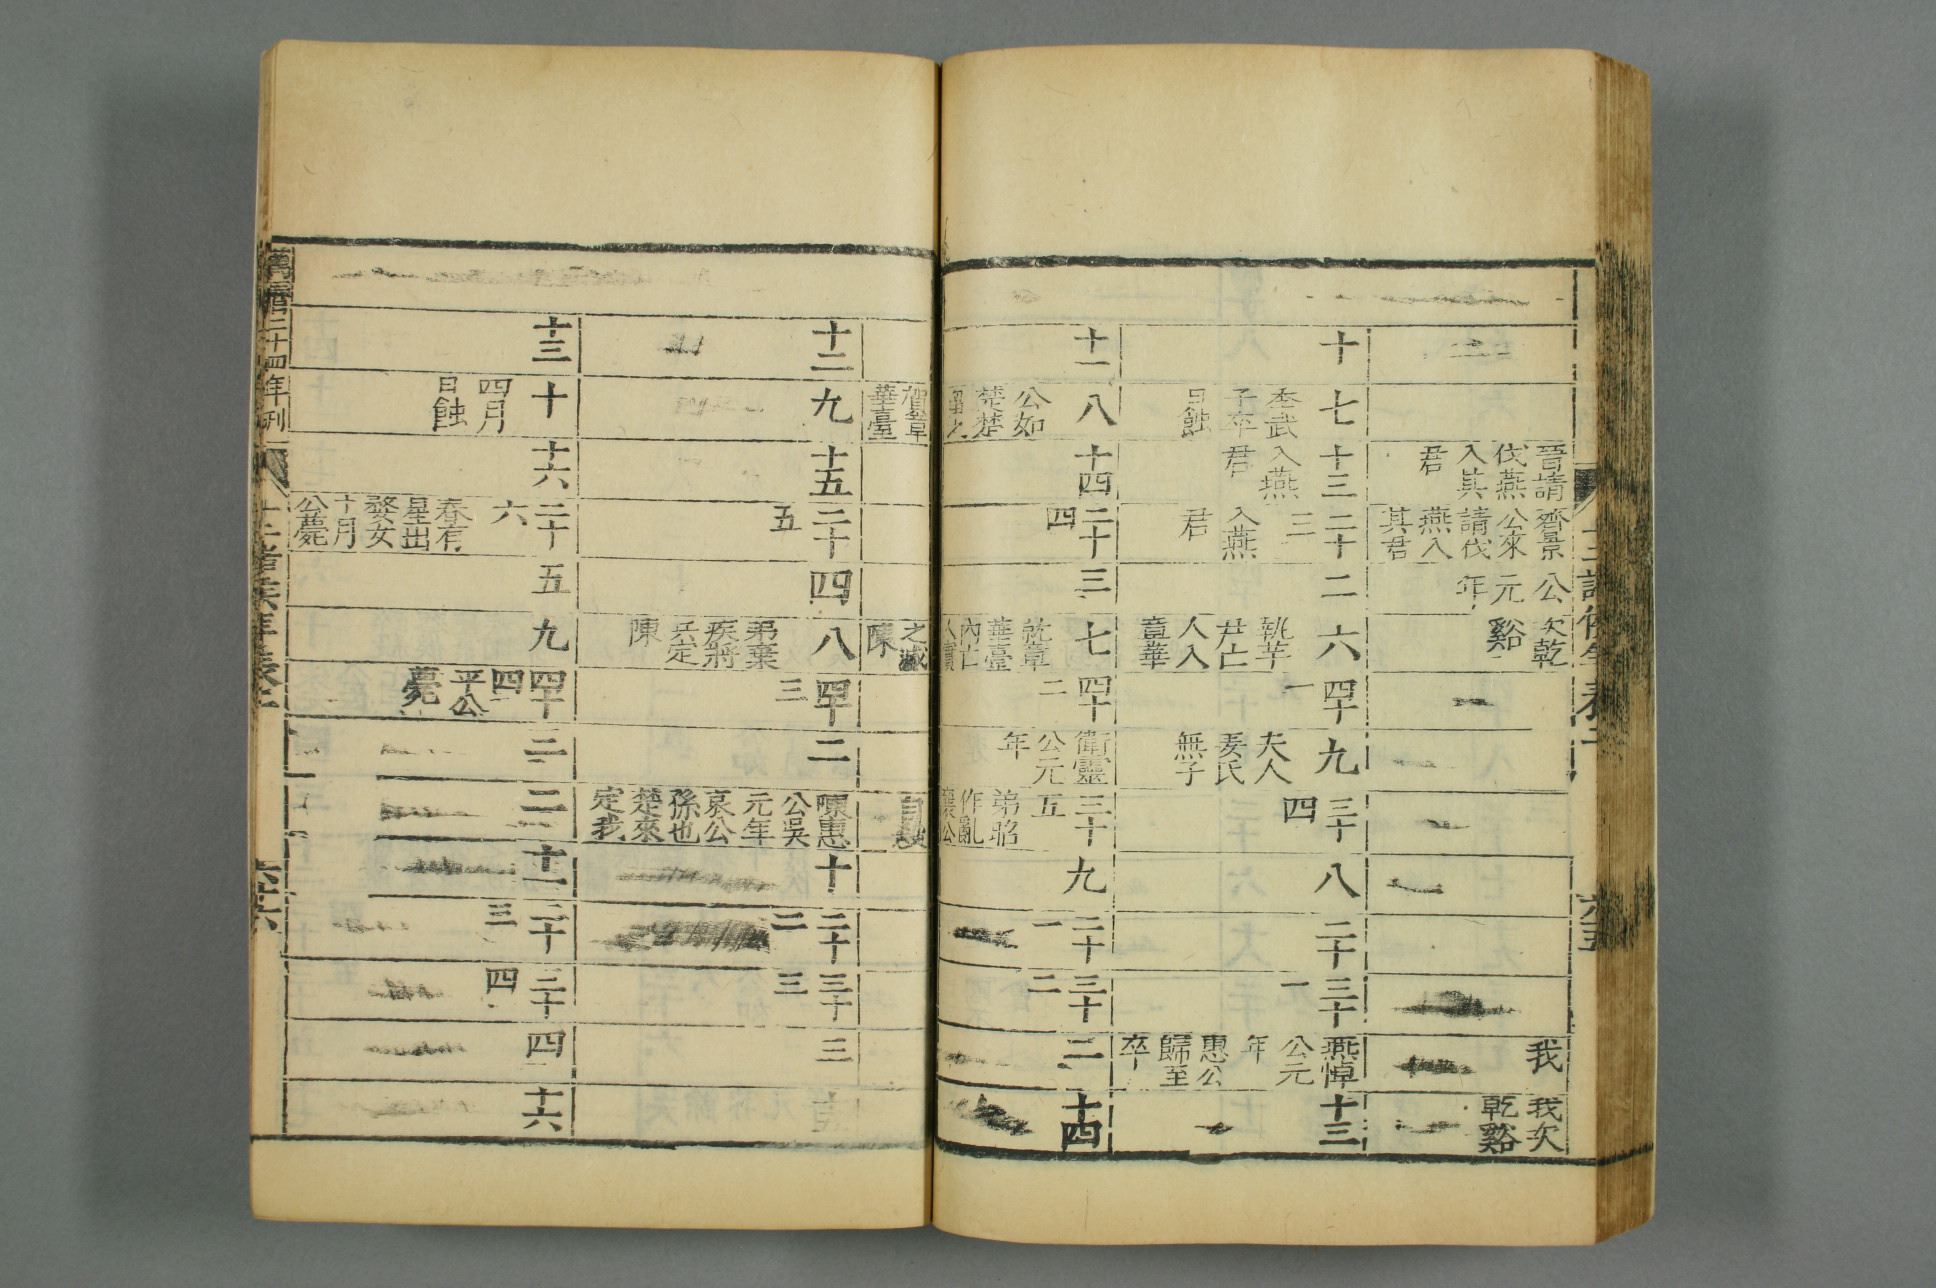 晋請
伐燕
入其
君
齊景
公來
請伐
燕入
其君
公
元
年
次乾
谿
我
我次
乾谿
十
七
季武
子卒
日蝕
十三
入燕
君
二十
三
入燕
君
二
六
執芋
尹亡
人入
章華
四十
一
九
夫人
姜氏
無子
三十
四
八
二十
三十
一
燕悼
公元
年
惠公
歸至
卒
十三
十一
八
公如
楚楚
留之
十四
二十
四
三
七
就章
華臺
內亡
人實
四十
二
衛靈
公元
年
三十
五
弟招
作亂
襄公
九
二十
一
三十
二
二
十四
賀章
華臺
之滅
陳
自殺
十二
九
十五
二十
五
四
八
弟棄
疾將
兵定
陳
四十
三
二
陳惠
公吳
元年
哀公
孫也
楚來
定我
十
二十
二
三十
三
三
十三
十
四月
日蝕
十六
二十
六
春有
星出
婺女
十月
公薨
五
九
四十
四
平公
薨
三
二
十一
二十
三
三十
四
四
十六
萬曆二十四年刊
十二諸侯年表二
六十六